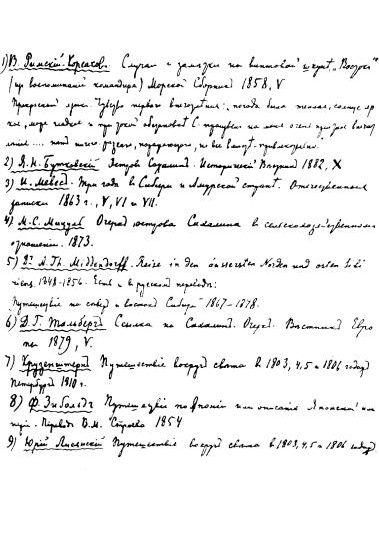 1) В. Римскій-Корсаковъ. Случаи и заметки на винтовой шхунѣ „Востокъ"
(из воспоминаній командира) Морской Сборникъ 1858, V
Прекрасный день. Чувство первого впечатления: погода была теплая, солнце яр
кое, море гладкое и
2) Я. Н. Бутковскій Островъ Сахалинъ. Историческій Вѣстникъ 1882, X
3) И. Мевесъ. Три года в Сибири и Амурской странѣ. Отечественныя
записки 1863 г., V, VI и VII.
4) М. С. Мицуль Очеркъ острова Сахалина в сельскохозяйственном
отношении. 1873.
5) Dr. A. Th. Middendorff. Reise in den äussersten Norden und osten Sibi
riens. 1848-1856. Есть и в русском переводѣ:
Путешествіе на север и востокъ Сибири 1867-1878.
6) Д. Г. Тальбергъ Ссылка на Сахалинъ. Очеркъ. Вѣстникъ Евро
пы 1879, V.
7) Крузенштернъ Путешествіе вокруг света в 1803, 4, 5 и 1806 годах
Петербургъ 1810 г.
8) Ф. Зибольдъ Путешествіе по Японіи или описание Японской им
періи. Переводъ В. М. Строева 1854
9) Юрій Лисянскій Путешествіе вокруг света в 1803, 4, 5 и 1806 годах